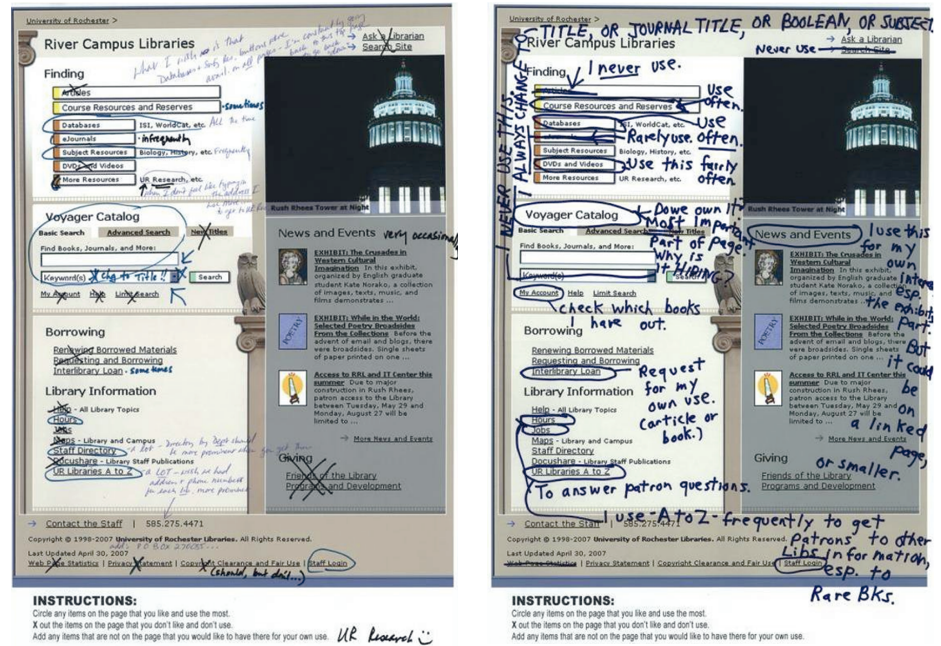 University of Rochester >
River Campus Libraries
→ Ask a Librarian
→ Search Site
What I like is that
Finding
Articles
Course Resources and Reserves
• sometimes
Databases
ISI, WorldCat, etc.
All the time
eJournals
• infrequently
Subject Resources
Biology, History, etc.
Frequently
DVDs and Videos
More Resources
UR Research, etc.
Rush Rhees Tower at Night
Voyager Catalog
Basic Search Advanced Search New Titles
Find Books, Journals, and More:
Keyword(s)
chg to Title!!
Search
My Account Help Limit Search
News and Events
very occasionally
EXHIBIT: The Crusades in
Western Cultural
Imagination In this exhibit,
organized by English graduate
student Kate Norako, a collection
of images, texts, music, and
films demonstrates ...
POETRY
EXHIBIT: While in the World:
Selected Poetry Broadsides
From the Collections Before the
advent of email and blogs, there
were broadsides. Single sheets
of paper printed on one ...
Access to RRL and IT Center this
summer Due to major
construction in Rush Rhees,
patron access to the Library
between Tuesday, May 29 and
Monday, August 27 will be
limited to ...
→ More News and Events
Borrowing
Renewing Borrowed Materials
Requesting and Borrowing
Interlibrary Loan
• sometimes
Library Information
Help - All Library Topics
Hours
Jobs
Maps - Library and Campus
Staff Directory
- a lot
- Directory by Dept should
be more prominent
Docushare - Library Staff Publications
UR Libraries A to Z
- a LOT - wish we had
address + phone numbers
for each lib. more prominent
Giving
Friends of the Library
Programs and Development
→ Contact the Staff | 585.275.4471
Copyright © 1998-2007 University of Rochester Libraries. All Rights Reserved.
add P.O. BOX
Last Updated April 30, 2007
Web Page Statistics | Privacy Statement | Copyright Clearance and Fair Use | Staff Login
(should, but don't...)
INSTRUCTIONS:
Circle any items on the page that you like and use the most.
X out the items on the page that you don't like and don't use.
Add any items that are not on the page that you would like to have there for your own use.
UR Research :)
University of Rochester >
TITLE, OR JOURNAL TITLE, OR BOOLEAN, OR SUBJECT.
River Campus Libraries
→ Ask a Librarian
Never Use
Search Site
I NEVER USE THIS.
I ALWAYS CHANGE
Finding
I never use.
Articles
Course Resources and Reserves
Use often.
Databases
ISI, WorldCat, etc.
Use often.
Rarely use.
Subject Resources
Biology, History, etc.
DVDs and Videos
Use this fairly often.
More Resources
UR Research, etc.
Rush Rhees Tower at Night
Voyager Catalog
Do we own it?
Most important
Part of page.
Why is
it HIDING?
Basic Search Advanced Search New Titles
Find Books, Journals, and More:
Keyword(s)
Search
My Account Help Limit Search
check which books
I have out.
News and Events
I use this
for my
own
interest
esp.
the exhibits
part.
But
it could
be
on
a linked
page,
or smaller.
EXHIBIT: The Crusades in
Western Cultural
Imagination In this exhibit,
organized by English graduate
student Kate Norako, a collection
of images, texts, music, and
films demonstrates ...
POETRY
EXHIBIT: While in the World:
Selected Poetry Broadsides
From the Collections Before the
advent of email and blogs, there
were broadsides. Single sheets
of paper printed on one ...
Access to RRL and IT Center this
summer Due to major
construction in Rush Rhees,
patron access to the Library
between Tuesday, May 29 and
Monday, August 27 will be
limited to ...
→ More News and Events
Borrowing
Renewing Borrowed Materials
Requesting and Borrowing
Interlibrary Loan
Request
for my
own use.
(article or
book.)
Library Information
Help - All Library Topics
Hours
Jobs
Maps - Library and Campus
Staff Directory
Docushare - Library Staff Publications
UR Libraries A to Z
To answer patron questions.
Giving
Friends of the Library
Programs and Development
→ Contact the Staff | 585.275.4471
I use - A to Z - frequently to get
Patrons to other
Libs information,
esp. to
Rare BKs.
Copyright © 1998-2007 University of Rochester Libraries. All Rights Reserved.
Last Updated April 30, 2007
Web Page Statistics | Privacy Statement | Copyright Clearance and Fair Use | Staff Login
INSTRUCTIONS:
Circle any items on the page that you like and use the most.
X out the items on the page that you don't like and don't use.
Add any items that are not on the page that you would like to have there for your own use.